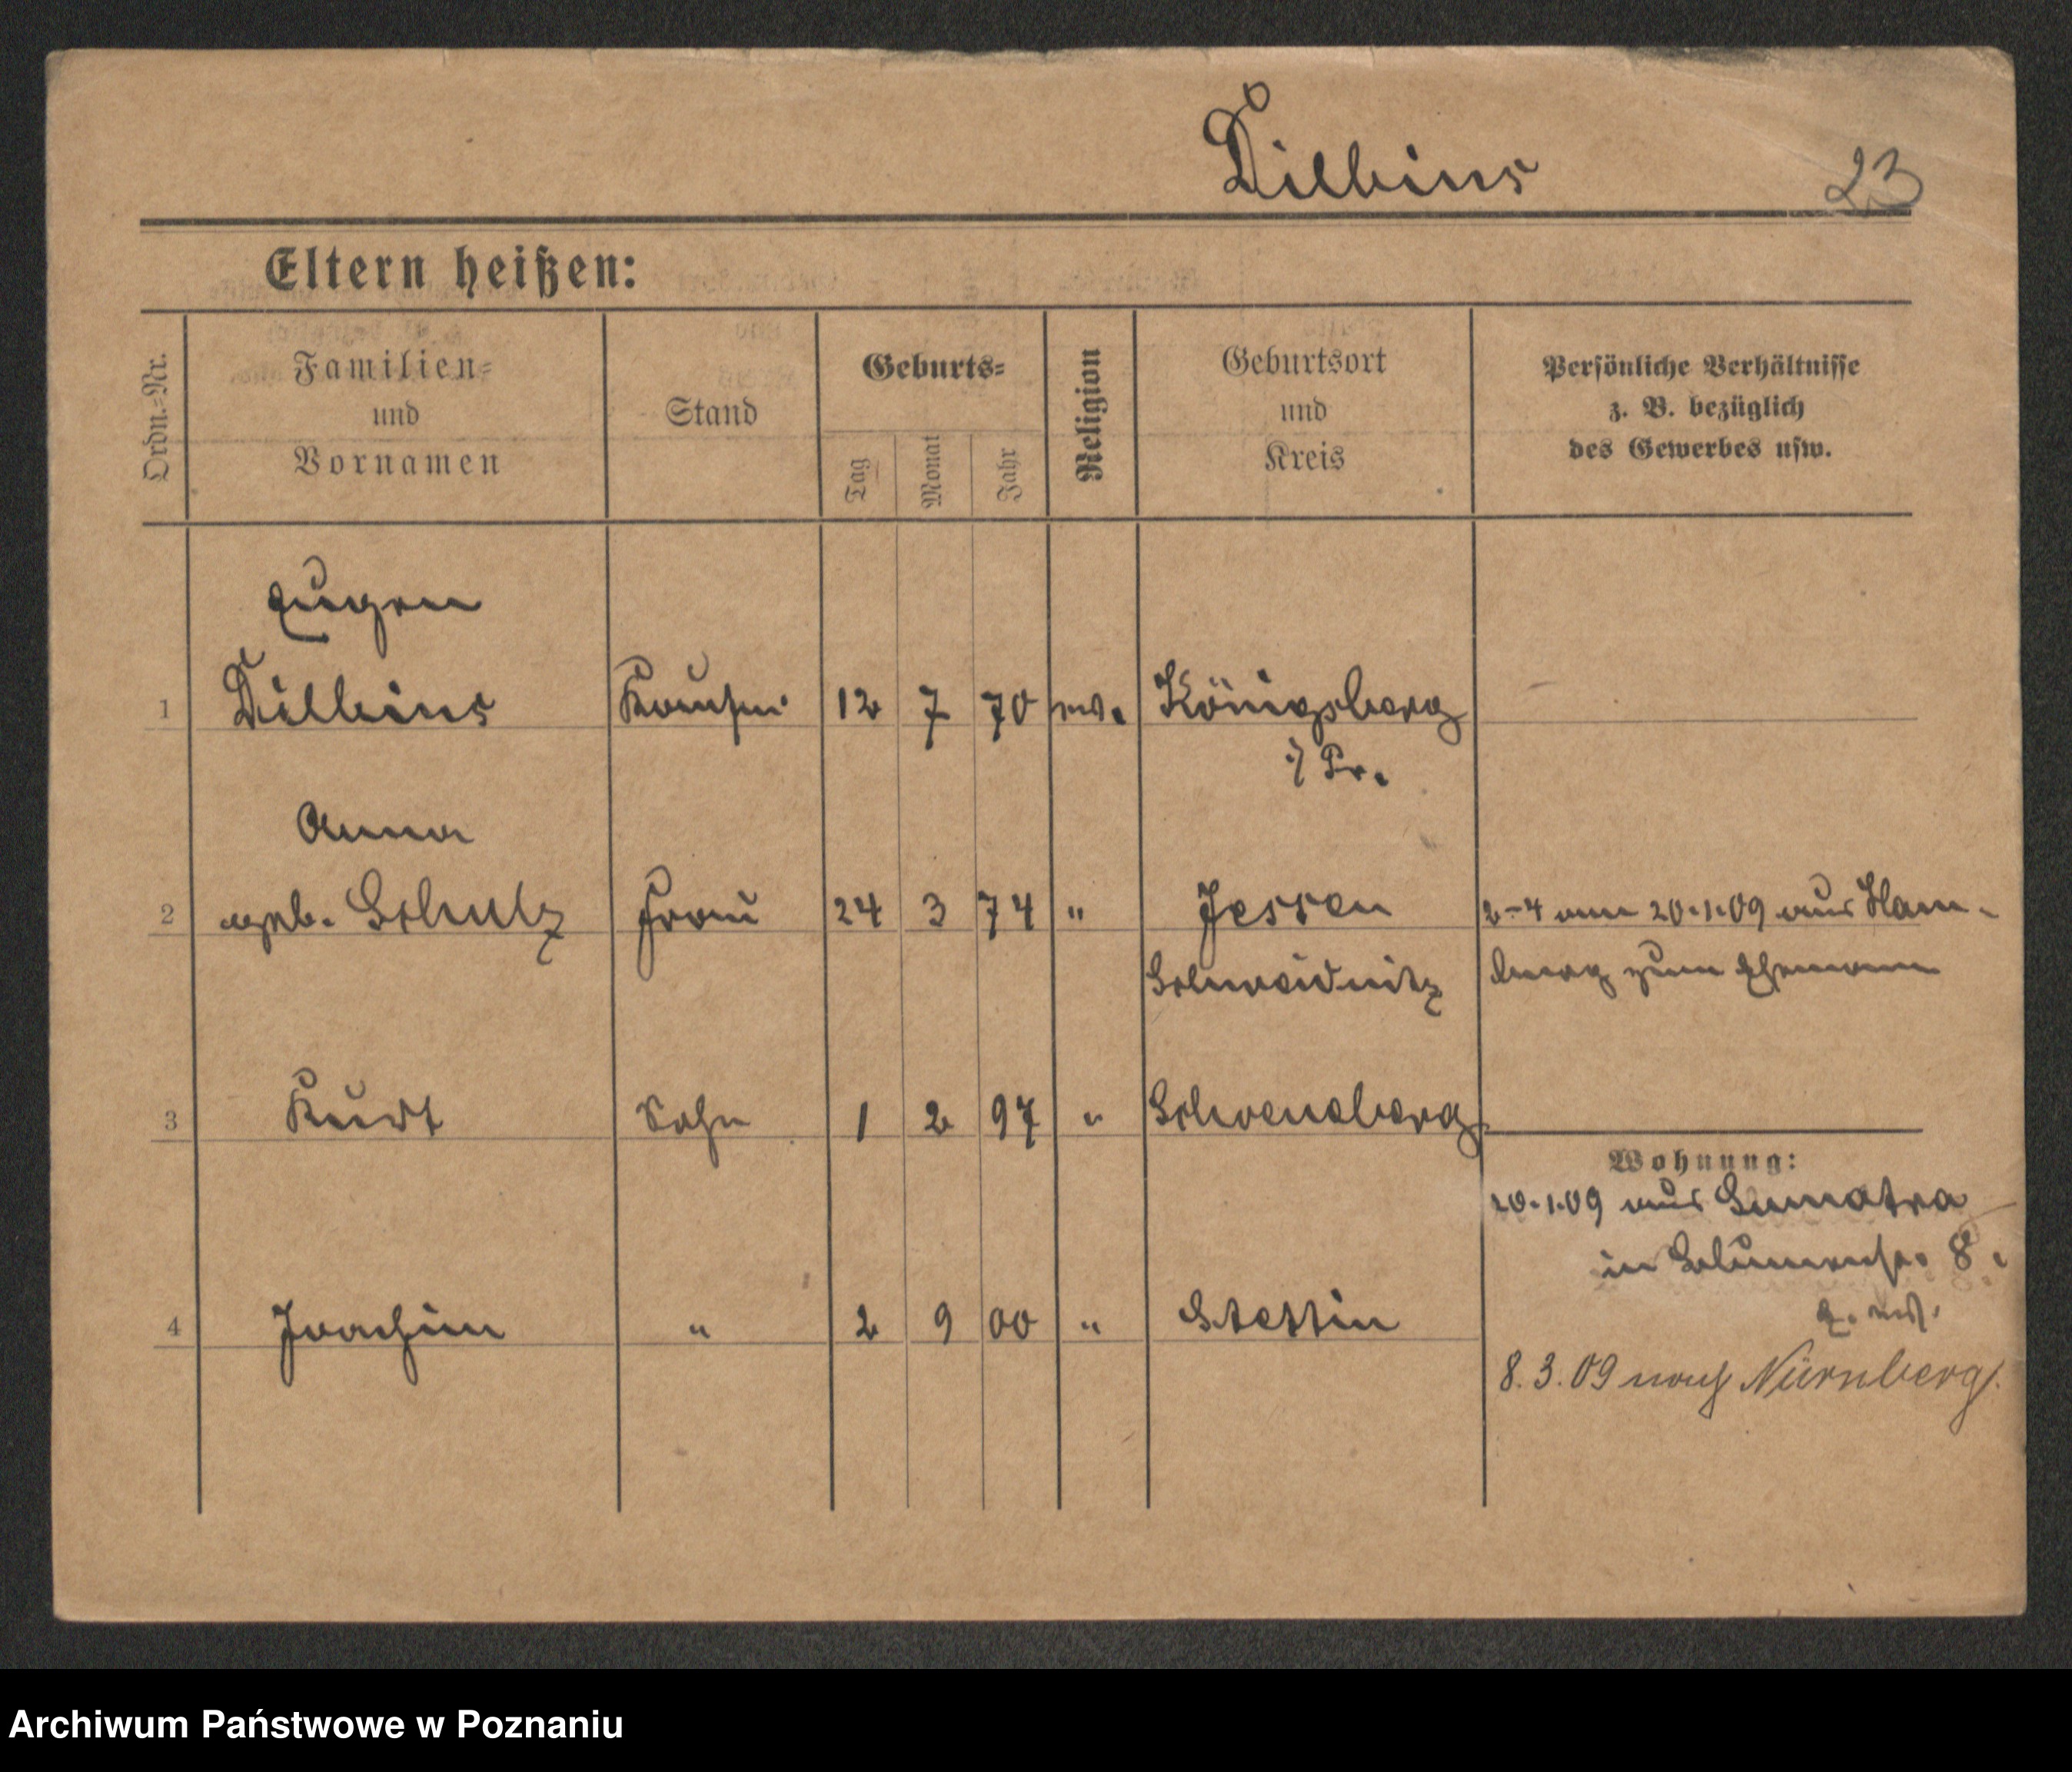 Dilbins
23
Eltern heißen:
Ordn.-Nr.
Familien-
und
Vornamen
Stand
Geburts-
Tag
Monat
Jahr
Religion
Geburtsort
und
Kreis
Persönliche Verhältnisse
z. B. bezüglich
des Gewerbes usw.
Eugen
1 Dilbins Kaufm. 12 7 70 ev. Königsberg
i/Pr.
Anna
2 geb. Schulz Frau 24 3 74 " Jessen 2-4 am 20.1.09 aus Ham-
Schweidnitz burg zum Ehemann
3 Kurt Sohn 1 2 97 " Schoeneberg
Wohnung:
20.1.09 aus Sumatra
in Blumenstr. 8.
4 Joachim " 2 9 00 " Stettin
8.3.09 nach Nürnberg.
Archiwum Państwowe w Poznaniu